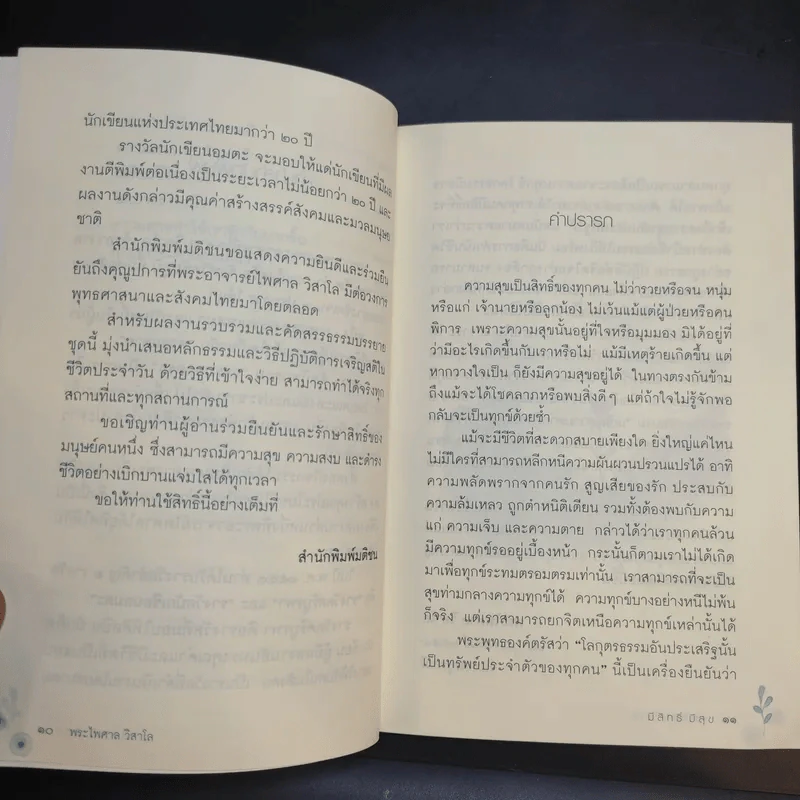 นักเขียนแห่งประเทศไทยมากว่า ๒๐ ปี
รางวัลนักเขียนอมตะ จะมอบให้แด่นักเขียนที่มีผล
งานตีพิมพ์ต่อเนื่องเป็นระยะเวลาไม่น้อยกว่า ๒๐ ปี และ
ผลงานดังกล่าวมีคุณค่าสร้างสรรค์สังคมและมวลมนุษย
ชาติ
สำนักพิมพ์มติชนขอแสดงความยินดีและร่วมยืน
ยันถึงคุณูปการที่พระอาจารย์ไพศาล วิสาโล มีต่อวงการ
พุทธศาสนาและสังคมไทยมาโดยตลอด
สำหรับผลงานรวบรวมและคัดสรรธรรมบรรยาย
ชุดนี้ มุ่งนำเสนอหลักธรรมและวิธีปฏิบัติการเจริญสติใน
ชีวิตประจำวัน ด้วยวิธีที่เข้าใจง่าย สามารถทำได้จริงทุก
สถานที่และทุกสถานการณ์
ขอเชิญท่านผู้อ่านร่วมยืนยันและรักษาสิทธิ์ของ
มนุษย์คนหนึ่ง ซึ่งสามารถมีความสุข ความสงบ และดำรง
ชีวิตอย่างเบิกบานแจ่มใสได้ทุกเวลา
ขอให้ท่านใช้สิทธิ์นี้อย่างเต็มที่
สำนักพิมพ์มติชน
๑๐ พระไพศาล วิสาโล
คำปรารภ
ความสุขเป็นสิทธิ์ของทุกคน ไม่ว่ารวยหรือจน หนุ่ม
หรือแก่ เจ้านายหรือลูกน้อง ไม่เว้นแม้แต่ผู้ป่วยหรือคน
พิการ เพราะความสุขนั้นอยู่ที่ใจหรือมุมมอง มิได้อยู่ที่
ว่ามีอะไรเกิดขึ้นกับเราหรือไม่ แม้มีเหตุร้ายเกิดขึ้น แต่
หากวางใจเป็น ก็ยังมีความสุขอยู่ได้ ในทางตรงกันข้าม
ถึงแม้จะได้โชคลาภหรือพบสิ่งดีๆ แต่ถ้าใจไม่รู้จักพอ
กลับจะเป็นทุกข์ด้วยซ้ำ
แม้จะมีชีวิตที่สะดวกสบายเพียงใด ยิ่งใหญ่แค่ไหน
ไม่มีใครที่สามารถหลีกหนีความผันผวนปรวนแปรได้ อาทิ
ความพลัดพรากจากคนรัก สูญเสียของรัก ประสบกับ
ความล้มเหลว ถูกตำหนิติเตียน รวมทั้งต้องพบกับความ
แก่ ความเจ็บ และความตาย กล่าวได้ว่าเราทุกคนล้วน
มีความทุกข์รออยู่เบื้องหน้า กระนั้นก็ตามเราไม่ได้เกิด
มาเพื่อทุกข์ระทมตรอมตรมเท่านั้น เราสามารถที่จะเป็น
สุขท่ามกลางความทุกข์ได้ ความทุกข์บางอย่างหนีไม่พ้น
ก็จริง แต่เราสามารถยกจิตเหนือความทุกข์เหล่านั้นได้
พระพุทธองค์ตรัสว่า “โลกุตรธรรมอันประเสริฐนั้น
เป็นทรัพย์ประจำตัวของทุกคน” นี้เป็นเครื่องยืนยันว่า
มีสิทธิ์ มีสุข ๑๑